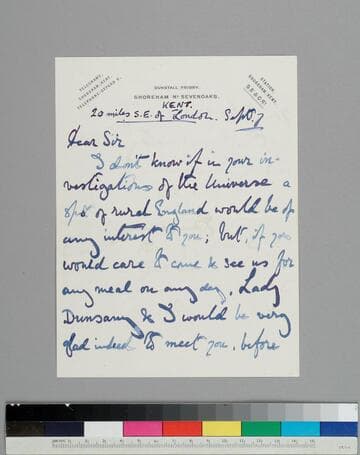 DUNSTALL PRIORY,
SHOREHAM Nr SEVENOAKS.
KENT.
TELEGRAMS,
SHOREHAM, KENT.
STATION
SHOREHAM, KENT.
20 miles S.E. of London. Sept. 7
Dear Sir
I don't know if in your in-
vestigations of the Universe a
spot of rural England would be of
any interest to you; but, if you
would care to come & see us for
any meal on any day, Lady
Dunsany & I would be very
glad indeed to meet you, before